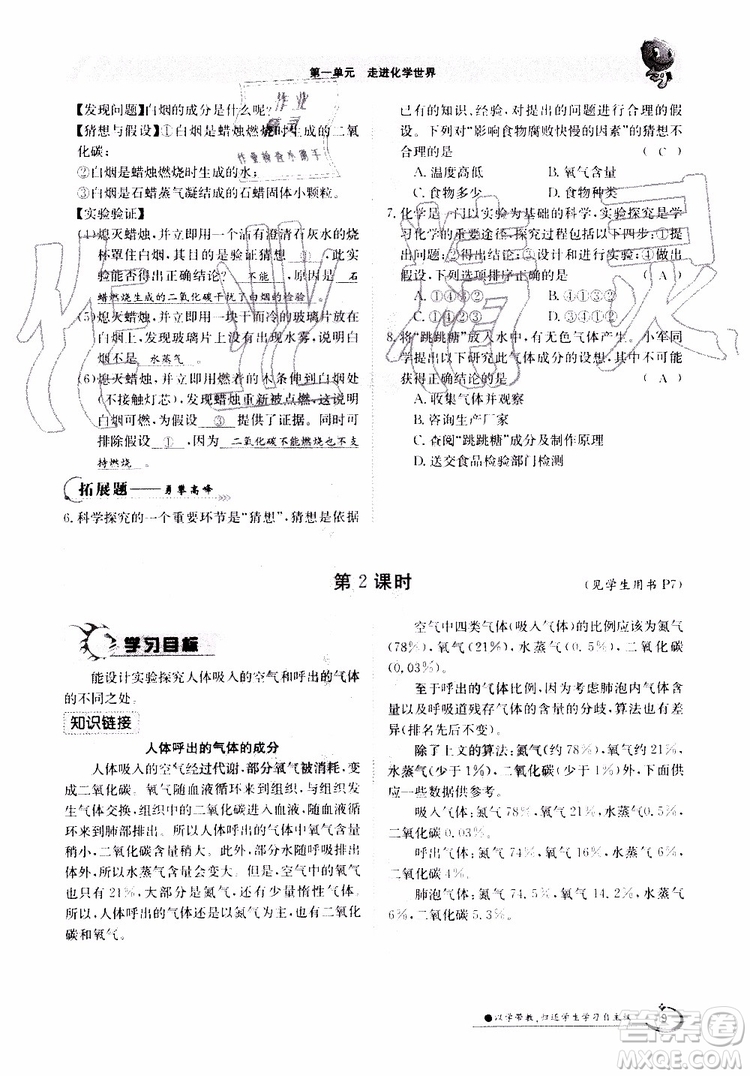 第一单元 走进化学世界
【发现问题】白烟的成分是什么呢?
【猜想与假设】①白烟是蜡烛燃烧时生成的二氧
化碳;
②白烟是蜡烛燃烧时生成的水;
③白烟是石蜡蒸气凝结成的石蜡固体小颗粒。
【实验验证】
(4)熄灭蜡烛,并立即用一个沾有澄清石灰水的烧
杯罩住白烟,其目的是验证猜想 ① ,此实
验能否得出正确结论? 不能 ,原因是 石
蜡燃烧生成的二氧化碳干扰了白烟的检验 。
(5)熄灭蜡烛,并立即用一块干而冷的玻璃片放在
白烟上,发现玻璃片上没有出现水雾,说明
白烟不是 水蒸气 。
(6)熄灭蜡烛,立即用燃着的木条去接触白烟
(不接触灯芯),发现蜡烛重新被点燃,说明
白烟可燃,为猜想 ③ 提供了证据。同时可
排除假设 ① ,因为 二氧化碳不能燃烧也不支
持燃烧 。
拓展题——勇攀高峰
6.科学探究的一个重要环节是“猜想”,猜想是依据
已有的知识、经验,对提出的问题进行合理的假
设。下列对“影响食物腐败快慢的因素”的猜想不
合理的是 ( C )
A.温度高低 B.氧气含量
C.食物多少 D.食物种类
7.化学是一门以实验为基础的科学,实验探究是学
习化学的重要途径,探究过程包括以下四步:①提
出问题;②得出结论;③实验验证;④做出
假设,下列选项排序正确的是 ( A )
A.①④③② B.④①③②
C.①③④② D.①②③④
8.将“跳跳糖”放入水中,有无色气体产生。小军同
学提出以下研究此气体成分的设想,其中可行的
是 ( A )
A.收集气体并检验
B.咨询生产厂家
C.查阅“跳跳糖”成分及制作原理
D.送交食品检验部门检测
第2课时
(见学生用书 P7)
学习目标
能设计实验探究人体吸入的空气和呼出的气体
的不同之处。
知识链接
人体呼出的气体的成分
人体吸入的空气经过代谢,部分氧气被消耗,变
成二氧化碳。氧气随血液循环进入组织,与组织发
生气体交换,组织中的二氧化碳进入血液,随血液循
环来到肺部排出。所以人体呼出的气体中氧气含量
稍小,二氧化碳含量稍大。但是由于空气中的氧气
只占了21%,大部分是氮气,也有少量二氧化碳气
体。所以人体呼出的气体还是以氮气为主,有二氧化
碳和氧气。
空气中四类气体(吸入气体)的比例应该为氮气
(78%),氧气(21%),水蒸气(0.5%),二氧化碳
(0.03%)。
至于呼出的气体比例,因为对肺泡内气体的含
量以及呼吸道残存气体的含量的分歧,算法也有差
异(排名先后不变)。
除了上文的算法:氮气(少于78%),氧气(15%),
水蒸气(少于1%),二氧化碳(少于4%),还有以下
数据供参考。
吸入气体:氮气78%,氧气21%,水蒸气0.5%,
二氧化碳0.03%。
呼出气体:氮气74%,氧气16%,水蒸气6%,二
氧化碳4%。
肺泡气体:氮气75%,氧气14%,水蒸气
二氧化碳5.3%。
●以学带教,归还学生学习自主权
9
作业
精灵
作业精灵
MXQE.COM